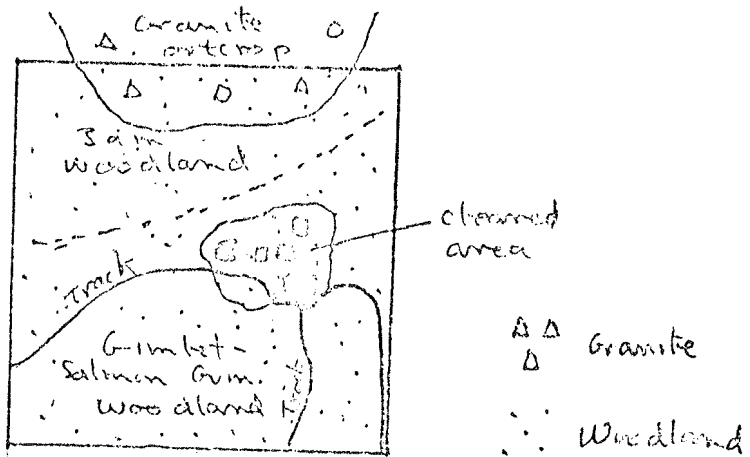 Granite
outcrop
Jam
woodland
cleared
area
Track
Gimlet-
Salmon Gum
woodland
Track
Granite
Woodland